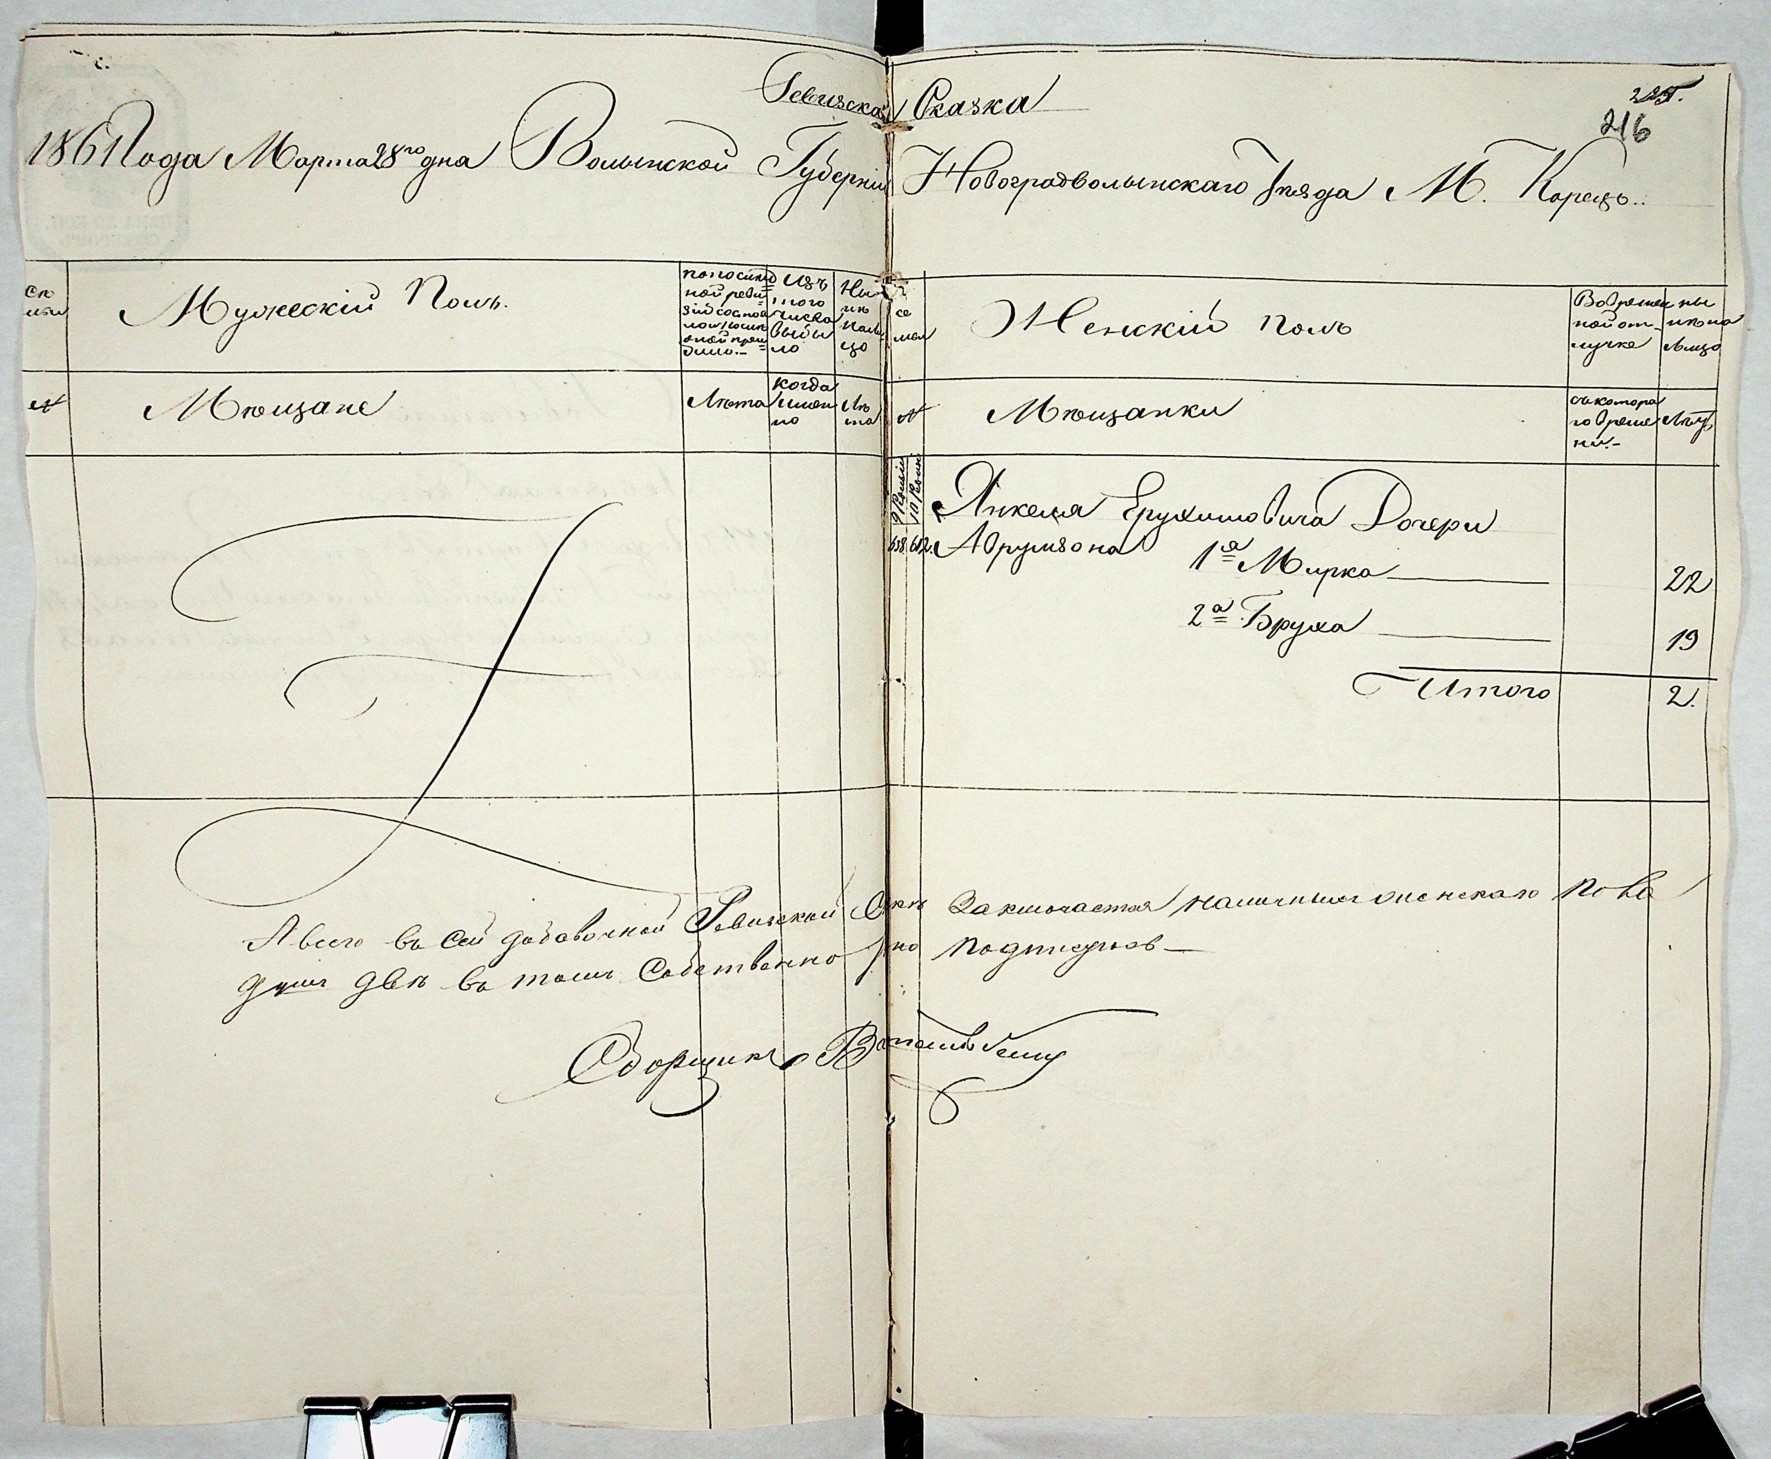 Ревизская Сказка
225.
216
1861 Года Марта 28го дня Волынской Губерніи Новоградволынскаго Уѣзда М. Корецъ..
Се
мьи
Мужескій Полъ.
По послѣд
ней реви
зіи состоя
ло и послѣ
оной приы
было.—
Изъ
того
числа
выбы
ло
Ны
нѣ
на ли
цо
Се
мьи
Женскій полъ
Во времен
ной от-
лучке
Ны
нѣ на
лицо
№
Мѣщане
Лѣта
когда
имен
но
Лѣ
та
№
Мѣщанки
съ котора
го време
ни.—
Лѣтъ
9 Ревизіи
10 Ревизіи
Янкеля Ерухимовича Дочери
638 612. Аврумзона 1я Мирка 22
2я Бруха 19
Итого 2.
А всего в сей добавочной Ревизской Скѣ Заключается наличных женскаго пола
душ двѣ въ томъ Собственно ручно подписуюсь—
Сборщикъ